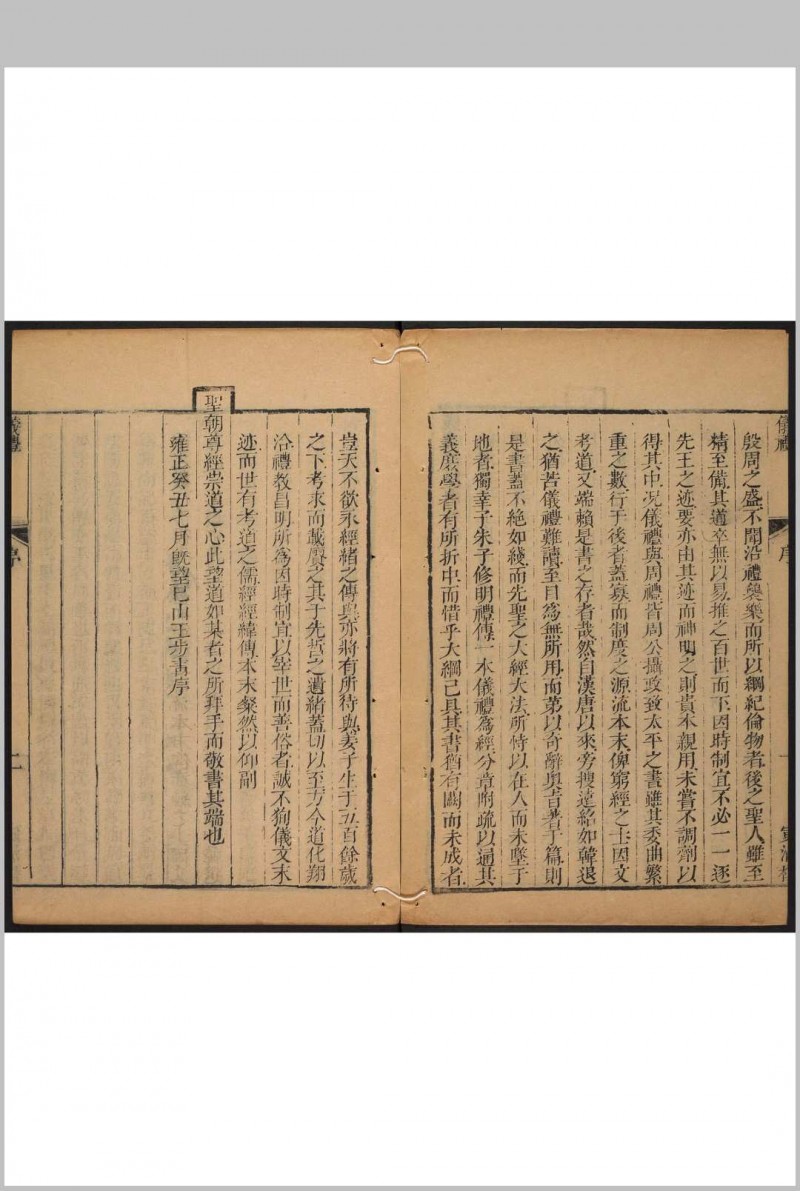 殷周之盛不聞沿禮襲樂而所以綱紀倫物者後之聖人雖至
精至備其道卒無以易推之百世而下因時制宜不必一一逐
先王之迹要亦由其迹而神明之則貴本親用未嘗不調劑以
得其中况儀禮與周禮皆周公攝政致太平之書雖其委曲繁
重之數行于後者蓋寡而制度之源流本末俾窮經之士因文
考道又端賴是書之存者哉然自漢唐以來旁搜遠紹如韓退
之猶苦儀禮難讀至目為無所用而第以奇辭奥旨著于篇則
是書蓋不絕如綫而先聖之大經大法所恃以在人而未墜于
地者獨幸子朱子修明禮傳一本儀禮為經分章附疏以通其
義庶學者有所折中而惜乎大綱已具其書猶有闕而未成者
豈天不欲永經緒之傳與亦將有所待與姜子生于五百餘歲
之下考求而載賡之其于先哲之遺緒蓋切以至方今道化翔
洽禮教昌明所為因時制宜以宰世而善俗者誠不狥儀文末
迹而世有考道之儒經經緯傳本末粲然以仰副
聖朝尊經崇道之心此望道如某者之所拜手而敬書其端也
雍正癸丑七月既望已山王步青序
儀禮
序
二